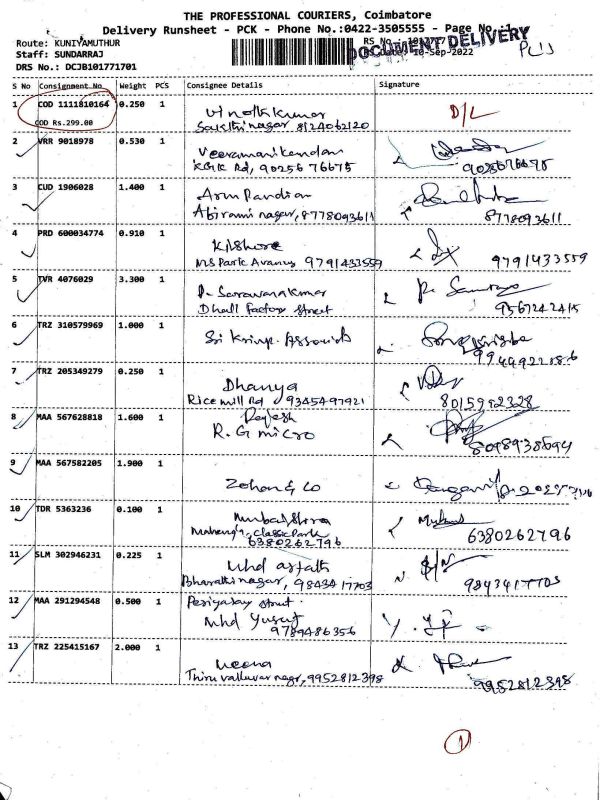 THE PROFESSIONAL COURIERS, Coimbatore
Delivery Runsheet - PCK - Phone No.:0422-3505555 - Page No.:1
Route: KUNIYAMUTHUR
Staff: SUNDARRAJ
DRS No.: DCJB101771701
RS No.
Date: 10-Sep-2022
DOCUMENT DELIVERY
S No Consignment No Weight PCS Consignee Details Signature
1 COD 1111810164 0.250 1 Vinothkumar D/L
COD Rs.299.00 Sakthinagar 8124062120
2 VRR 9018978 0.530 1 Veeramanikandan
KGK Rd, 90256 76675
3 CUD 1906028 1.400 1 Arun Pandian
Abirami nagar, 8778093611 8778093611
4 PRD 600034774 0.910 1 Kishore
MS Park Avanuy 9791433559 9791433559
5 TVR 4076029 3.300 1 P. Saravanakumar
Dhall Factory Street 9567242415
6 TRZ 310579969 1.000 1 Sri
7 TRZ 205349279 0.250 1 Dhanya
Rice mill Rd 93454-97921 8015992328
8 MAA 567628818 1.600 1 Rajesh
R.G micro 8098938694
9 MAA 567582205 1.900 1
Zohan & Co
10 TDR 5363236 0.100 1
Classic Park
6380262796 6380262796
11 SLM 302946231 0.225 1 Mhd
Bharathinagar, 98434 17703 9843417703
12 MAA 291294548 0.500 1 street
Mhd Yusuf
9789486356
13 TRZ 225415167 2.000 1 Meena
Thiruvalluvar nagr, 9952812398 9952812398
1